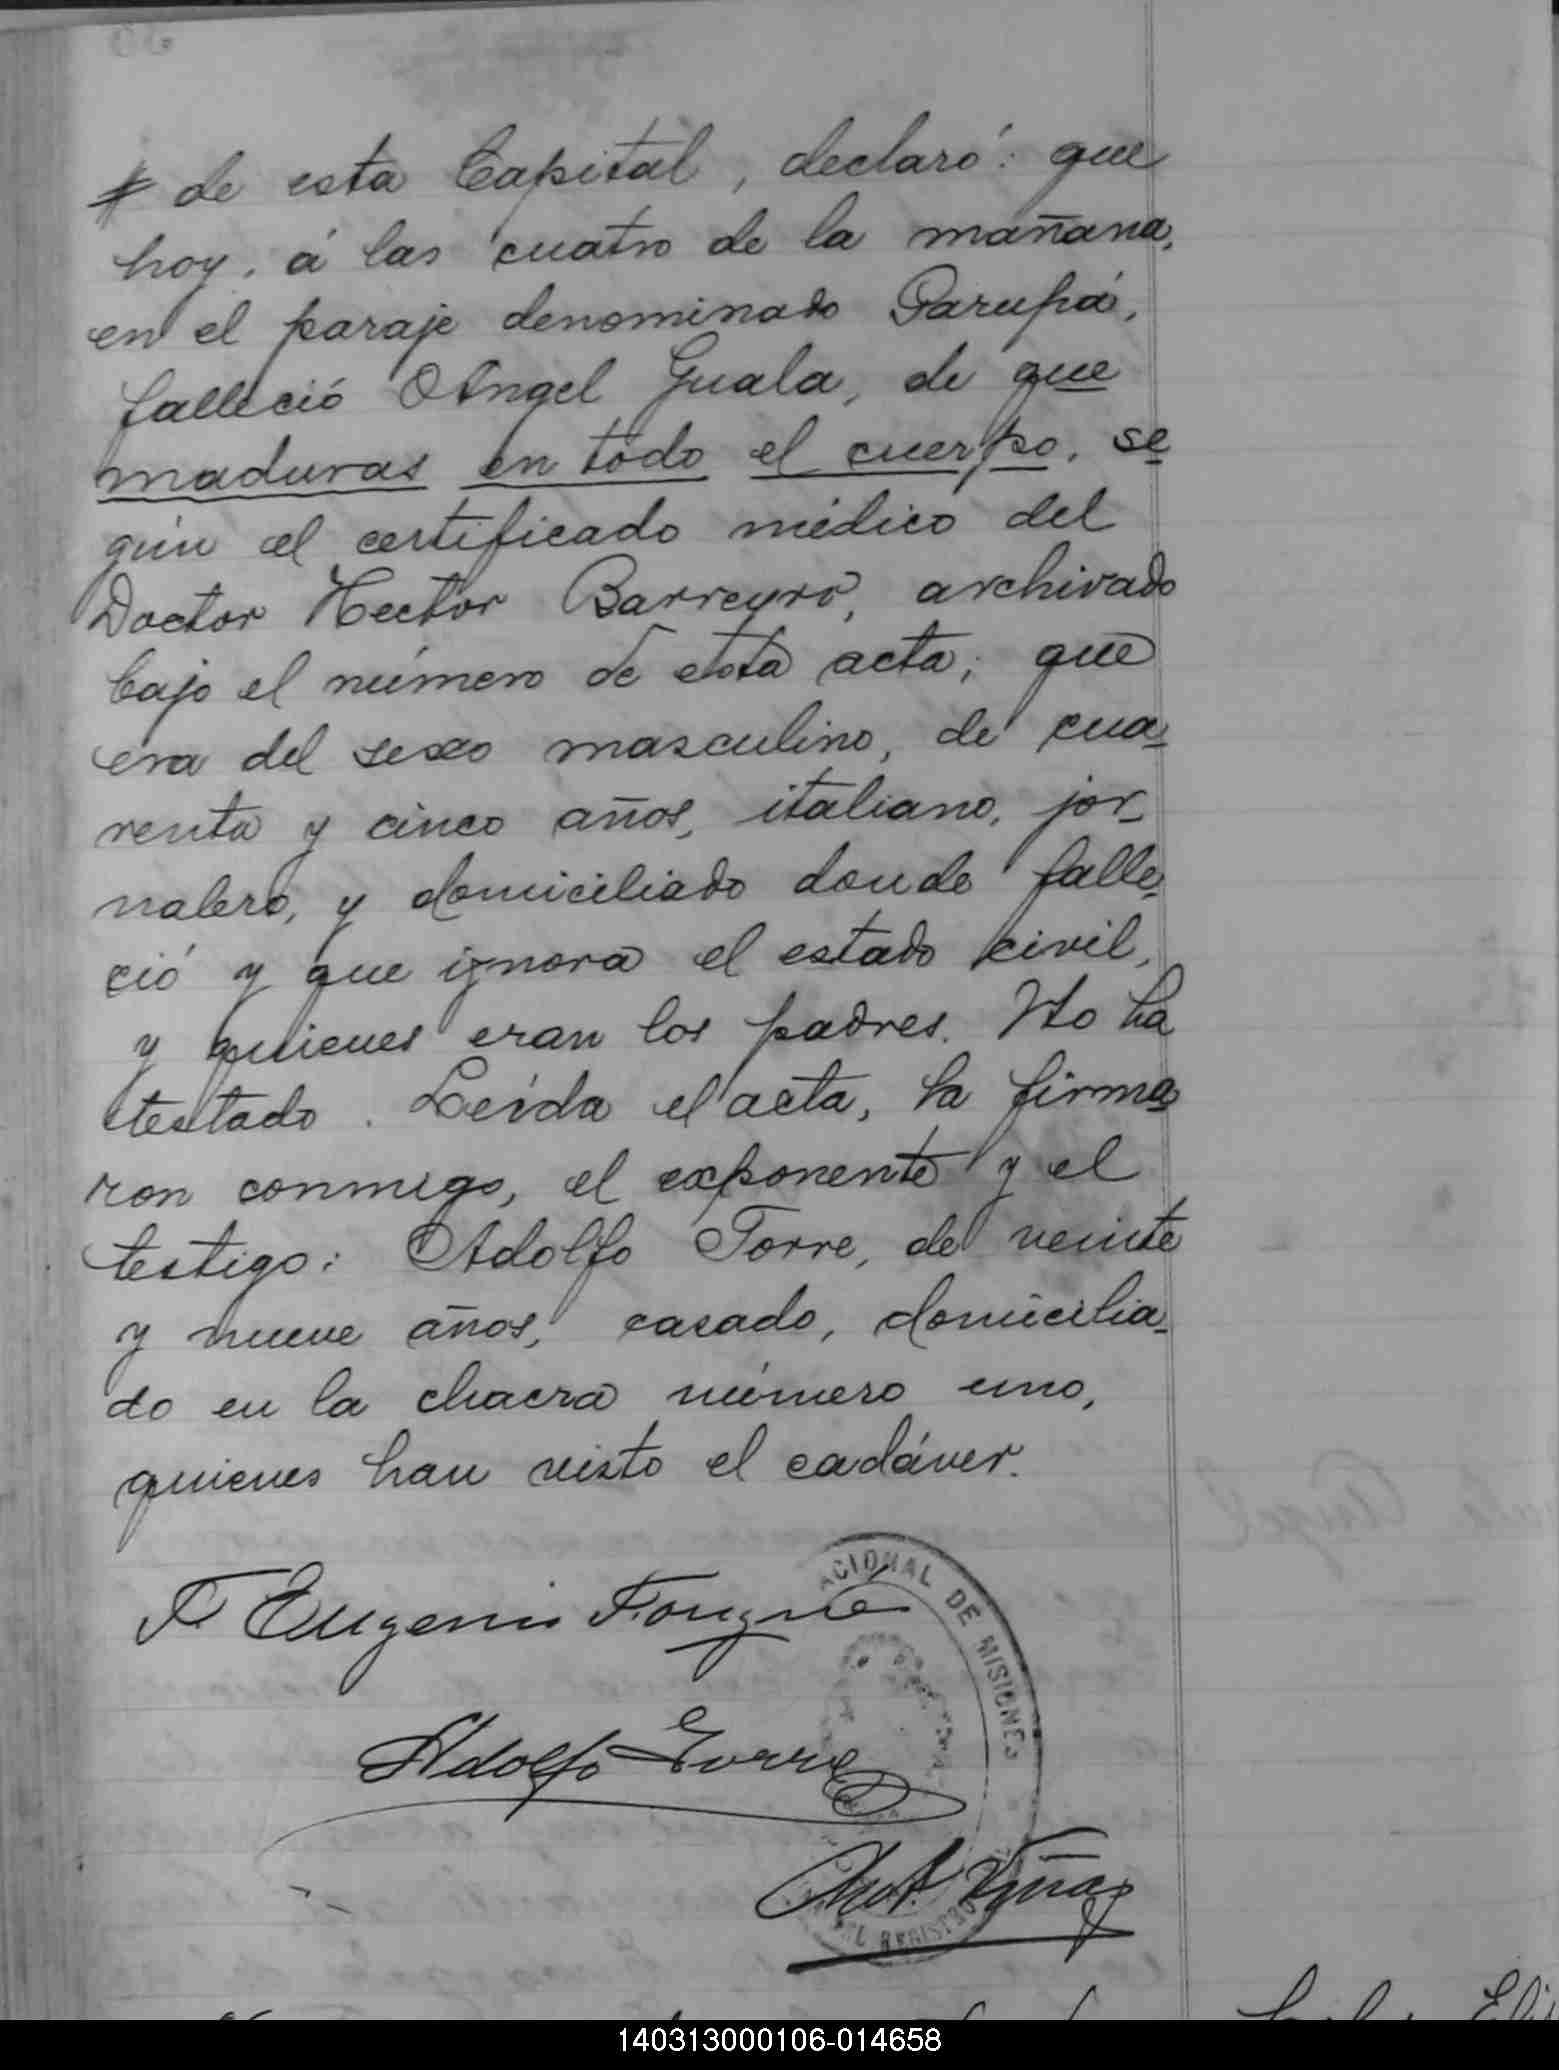 # de esta Capital, declaró: que
hoy, á las cuatro de la mañana,
en el paraje denominado Garupá,
falleció Angel Guala, de que
maduras en todo el cuerpo, se
gún el certificado médico del
Doctor Hector Barreyro, archivado
bajo el número de esta acta; que
era del sexo masculino, de cua-
renta y cinco años, italiano, jor-
nalero, y domiciliado donde falle-
ció y que ignora el estado civil,
y quienes eran los padres. No ha
testado. Leída el acta, la firma-
ron conmigo, el exponente y el
testigo: Adolfo Torre, de veinte
y nueve años, casado, domicilia-
do en la chacra número uno,
quienes han visto el cadáver.
Eugenio
ACIONAL DE MISIONES
Adolfo Torre
Viñas
REGISTRO
140313000106-014658